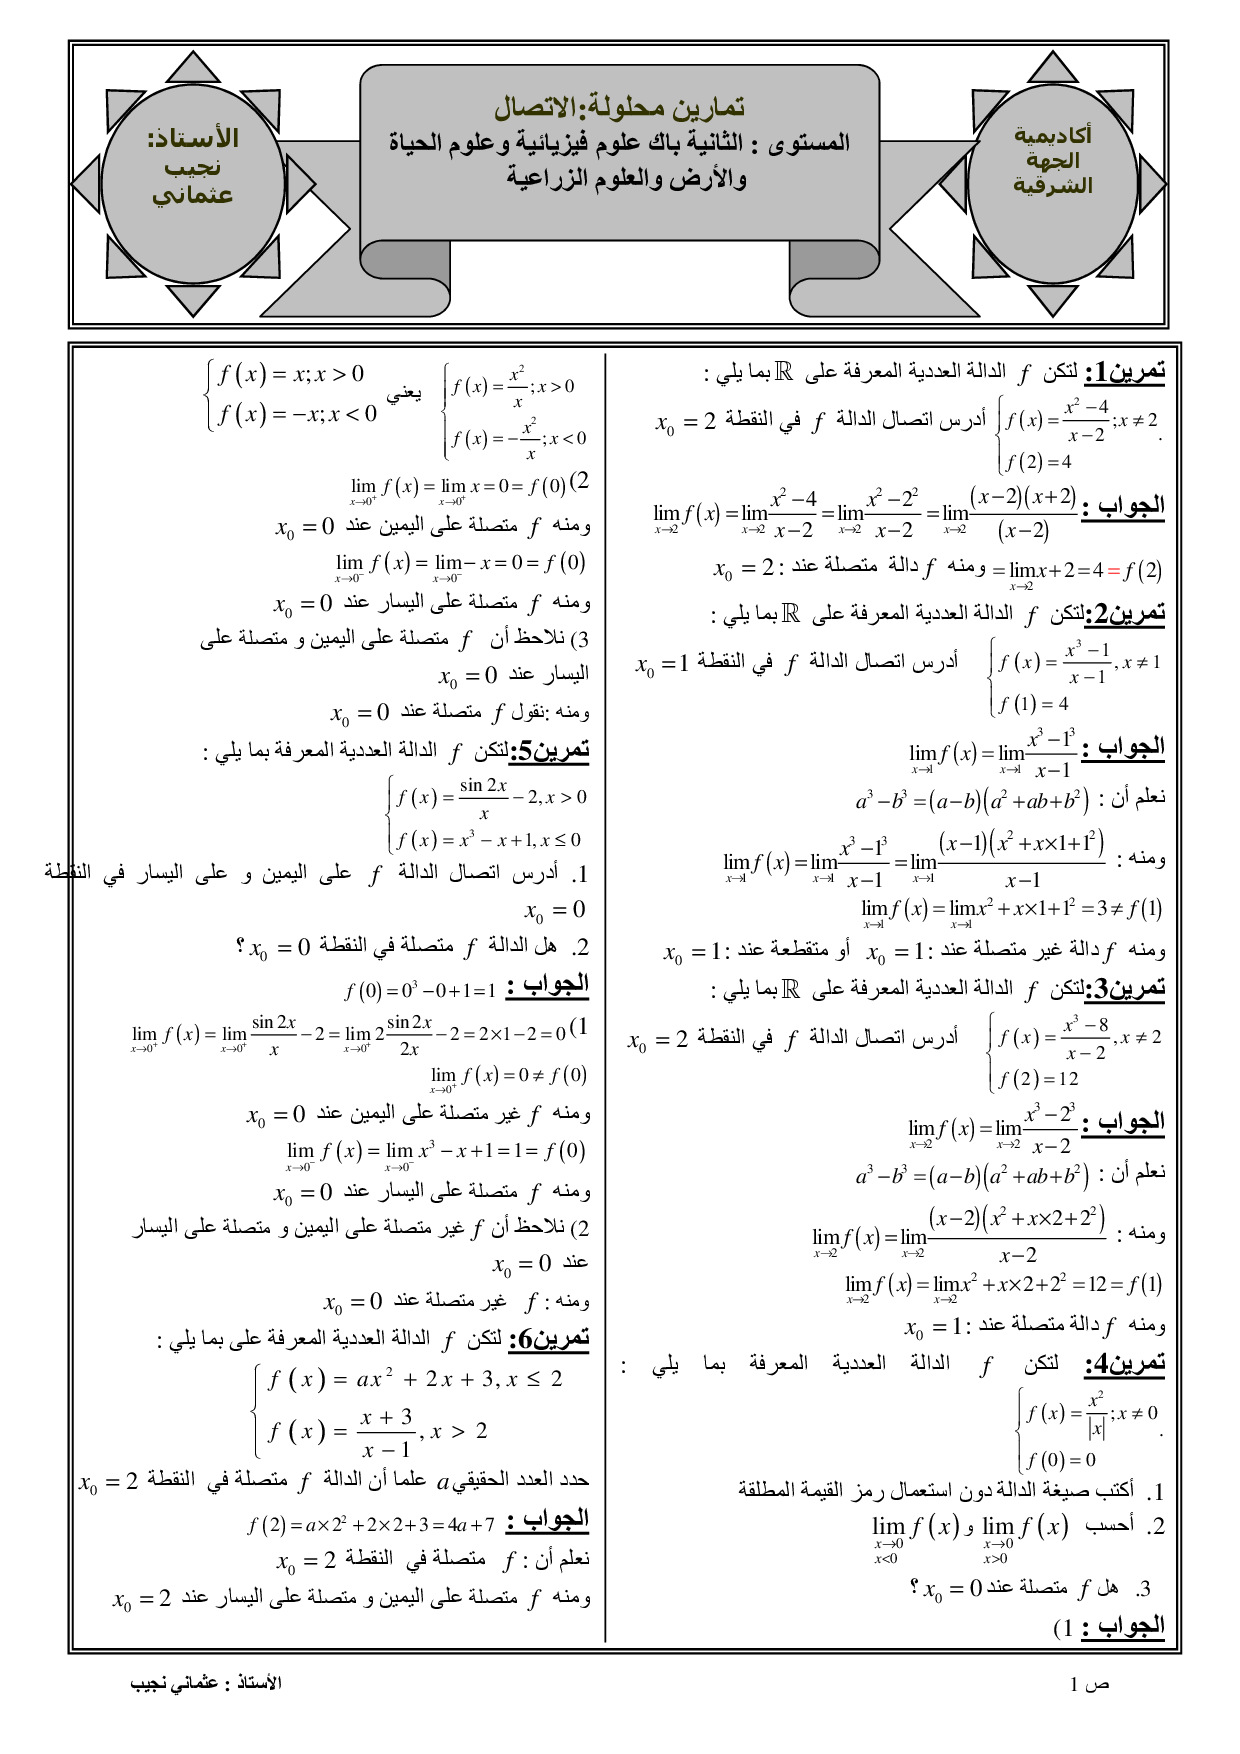 الأستاذ:
نجيب
عثماني
تمارين محلولة:الاتصال
المستوى : الثانية باك علوم فيزيائية وعلوم الحياة
والأرض والعلوم الزراعية
أكاديمية
الجهة
الشرقية
تمرين1: لتكن f الدالة العددية المعرفة على ℝ بما يلي :
{ f(x) = (x² − 4)/(x − 2) ; x ≠ 2 , f(2) = 4 . أدرس اتصال الدالة f في النقطة x₀ = 2
الجواب : lim_{x→2} f(x) = lim_{x→2} (x² − 4)/(x − 2) = lim_{x→2} (x² − 2²)/(x − 2) = lim_{x→2} (x−2)(x+2)/(x−2)
= lim_{x→2} x + 2 = 4 = f(2) ومنه f دالة متصلة عند : x₀ = 2
تمرين2:لتكن f الدالة العددية المعرفة على ℝ بما يلي :
{ f(x) = (x³ − 1)/(x − 1) , x ≠ 1 , f(1) = 4 أدرس اتصال الدالة f في النقطة x₀ = 1
الجواب : lim_{x→1} f(x) = lim_{x→1} (x³ − 1³)/(x − 1)
نعلم أن : a³ − b³ = (a − b)(a² + ab + b²)
ومنه : lim_{x→1} f(x) = lim_{x→1} (x³ − 1³)/(x − 1) = lim_{x→1} (x − 1)(x² + x×1 + 1²)/(x − 1)
lim_{x→1} f(x) = lim_{x→1} x² + x×1 + 1² = 3 ≠ f(1)
ومنه f دالة غير متصلة عند : x₀ = 1 أو متقطعة عند : x₀ = 1
تمرين3:لتكن f الدالة العددية المعرفة على ℝ بما يلي :
{ f(x) = (x³ − 8)/(x − 2) , x ≠ 2 , f(2) = 12 أدرس اتصال الدالة f في النقطة x₀ = 2
الجواب : lim_{x→2} f(x) = lim_{x→2} (x³ − 2³)/(x − 2)
نعلم أن : a³ − b³ = (a − b)(a² + ab + b²)
ومنه : lim_{x→2} f(x) = lim_{x→2} (x − 2)(x² + x×2 + 2²)/(x − 2)
lim_{x→2} f(x) = lim_{x→2} x² + x×2 + 2² = 12 = f(1)
ومنه f دالة متصلة عند : x₀ = 1
تمرين4: لتكن f الدالة العددية المعرفة بما يلي :
{ f(x) = x²/|x| ; x ≠ 0 , f(0) = 0 .
1. أكتب صيغة الدالة دون استعمال رمز القيمة المطلقة
2. أحسب lim_{x→0, x>0} f(x) و lim_{x→0, x<0} f(x)
3. هل f متصلة عند x₀ = 0 ؟
الجواب : 1)
{ f(x) = x²/x ; x > 0 , f(x) = −x²/x ; x < 0 يعني { f(x) = x; x > 0 , f(x) = −x; x < 0
2) lim_{x→0⁺} f(x) = lim_{x→0⁺} x = 0 = f(0)
ومنه f متصلة على اليمين عند x₀ = 0
lim_{x→0⁻} f(x) = lim_{x→0⁻} − x = 0 = f(0)
ومنه f متصلة على اليسار عند x₀ = 0
3) نلاحظ أن f متصلة على اليمين و متصلة على
اليسار عند x₀ = 0
ومنه :نقول f متصلة عند x₀ = 0
تمرين5:لتكن f الدالة العددية المعرفة بما يلي :
{ f(x) = sin 2x/x − 2, x > 0 , f(x) = x³ − x + 1, x ≤ 0
1. أدرس اتصال الدالة f على اليمين و على اليسار في النقطة
x₀ = 0
2. هل الدالة f متصلة في النقطة x₀ = 0 ؟
الجواب : f(0) = 0³ − 0 + 1 = 1
1) lim_{x→0⁺} f(x) = lim_{x→0⁺} sin 2x/x − 2 = lim_{x→0⁺} 2 sin 2x/2x − 2 = 2×1 − 2 = 0
lim_{x→0⁺} f(x) = 0 ≠ f(0)
ومنه f غير متصلة على اليمين عند x₀ = 0
lim_{x→0⁻} f(x) = lim_{x→0⁻} x³ − x + 1 = 1 = f(0)
ومنه f متصلة على اليسار عند x₀ = 0
2) نلاحظ أن f غير متصلة على اليمين و متصلة على اليسار
عند x₀ = 0
ومنه : f غير متصلة عند x₀ = 0
تمرين6: لتكن f الدالة العددية المعرفة على بما يلي :
{ f(x) = ax² + 2x + 3, x ≤ 2 , f(x) = (x + 3)/(x − 1), x > 2
حدد العدد الحقيقي a علما أن الدالة f متصلة في النقطة x₀ = 2
الجواب : f(2) = a×2² + 2×2 + 3 = 4a + 7
نعلم أن : f متصلة في النقطة x₀ = 2
ومنه f متصلة على اليمين و متصلة على اليسار عند x₀ = 2
ص 1
الأستاذ : عثماني نجيب